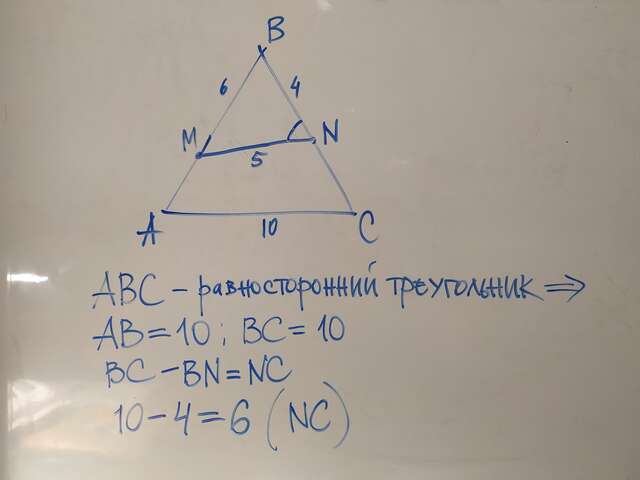 B
6
4
M
N
5
A
10
C
ABC – равносторонний треугольник ⇒
AB = 10 ; BC = 10
BC – BN = NC
10 – 4 = 6 (NC)